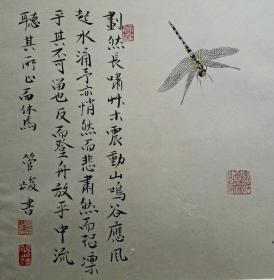 劃然長嘯艸木震動山鳴谷應風
起水涌予亦悄然而悲肅然而恐凜
乎其不可留也反而登舟放乎中流
聽其所止而休焉 管峻書